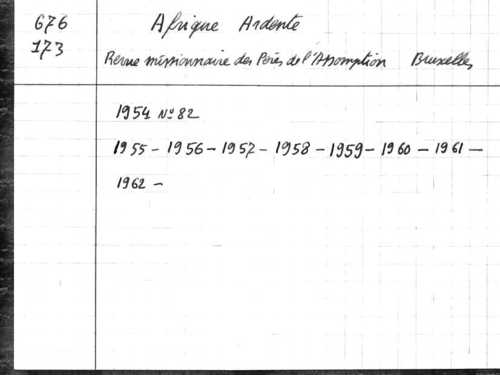 676 Afrique Ardente
173 Revue missionnaire des Pères de l'Assomption Bruxelles
1954 Nº 82
1955 - 1956 - 1957 - 1958 - 1959 - 1960 - 1961 -
1962 -